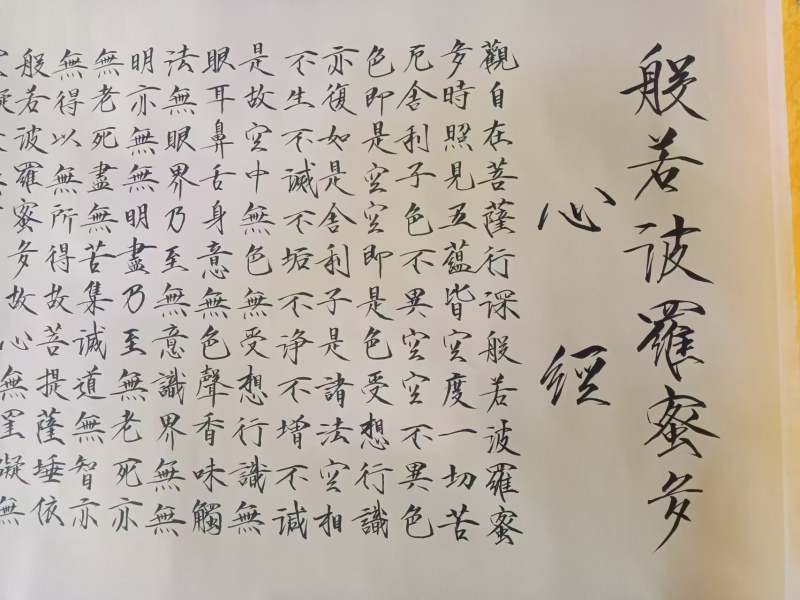 般若波羅蜜多
心經
觀自在菩薩行深般若波羅蜜
多時照見五蘊皆空度一切苦
厄舍利子色不異空空不異色
色即是空空即是色受想行識
亦復如是舍利子是諸法空相
不生不滅不垢不净不增不減
是故空中無色無受想行識無
眼耳鼻舌身意無色聲香味觸
法無眼界乃至無意識界無無
明亦無無明盡乃至無老死亦
無老死盡無苦集滅道無智亦
無得以無所得故菩提薩埵依
般若波羅蜜多故心無罣礙無